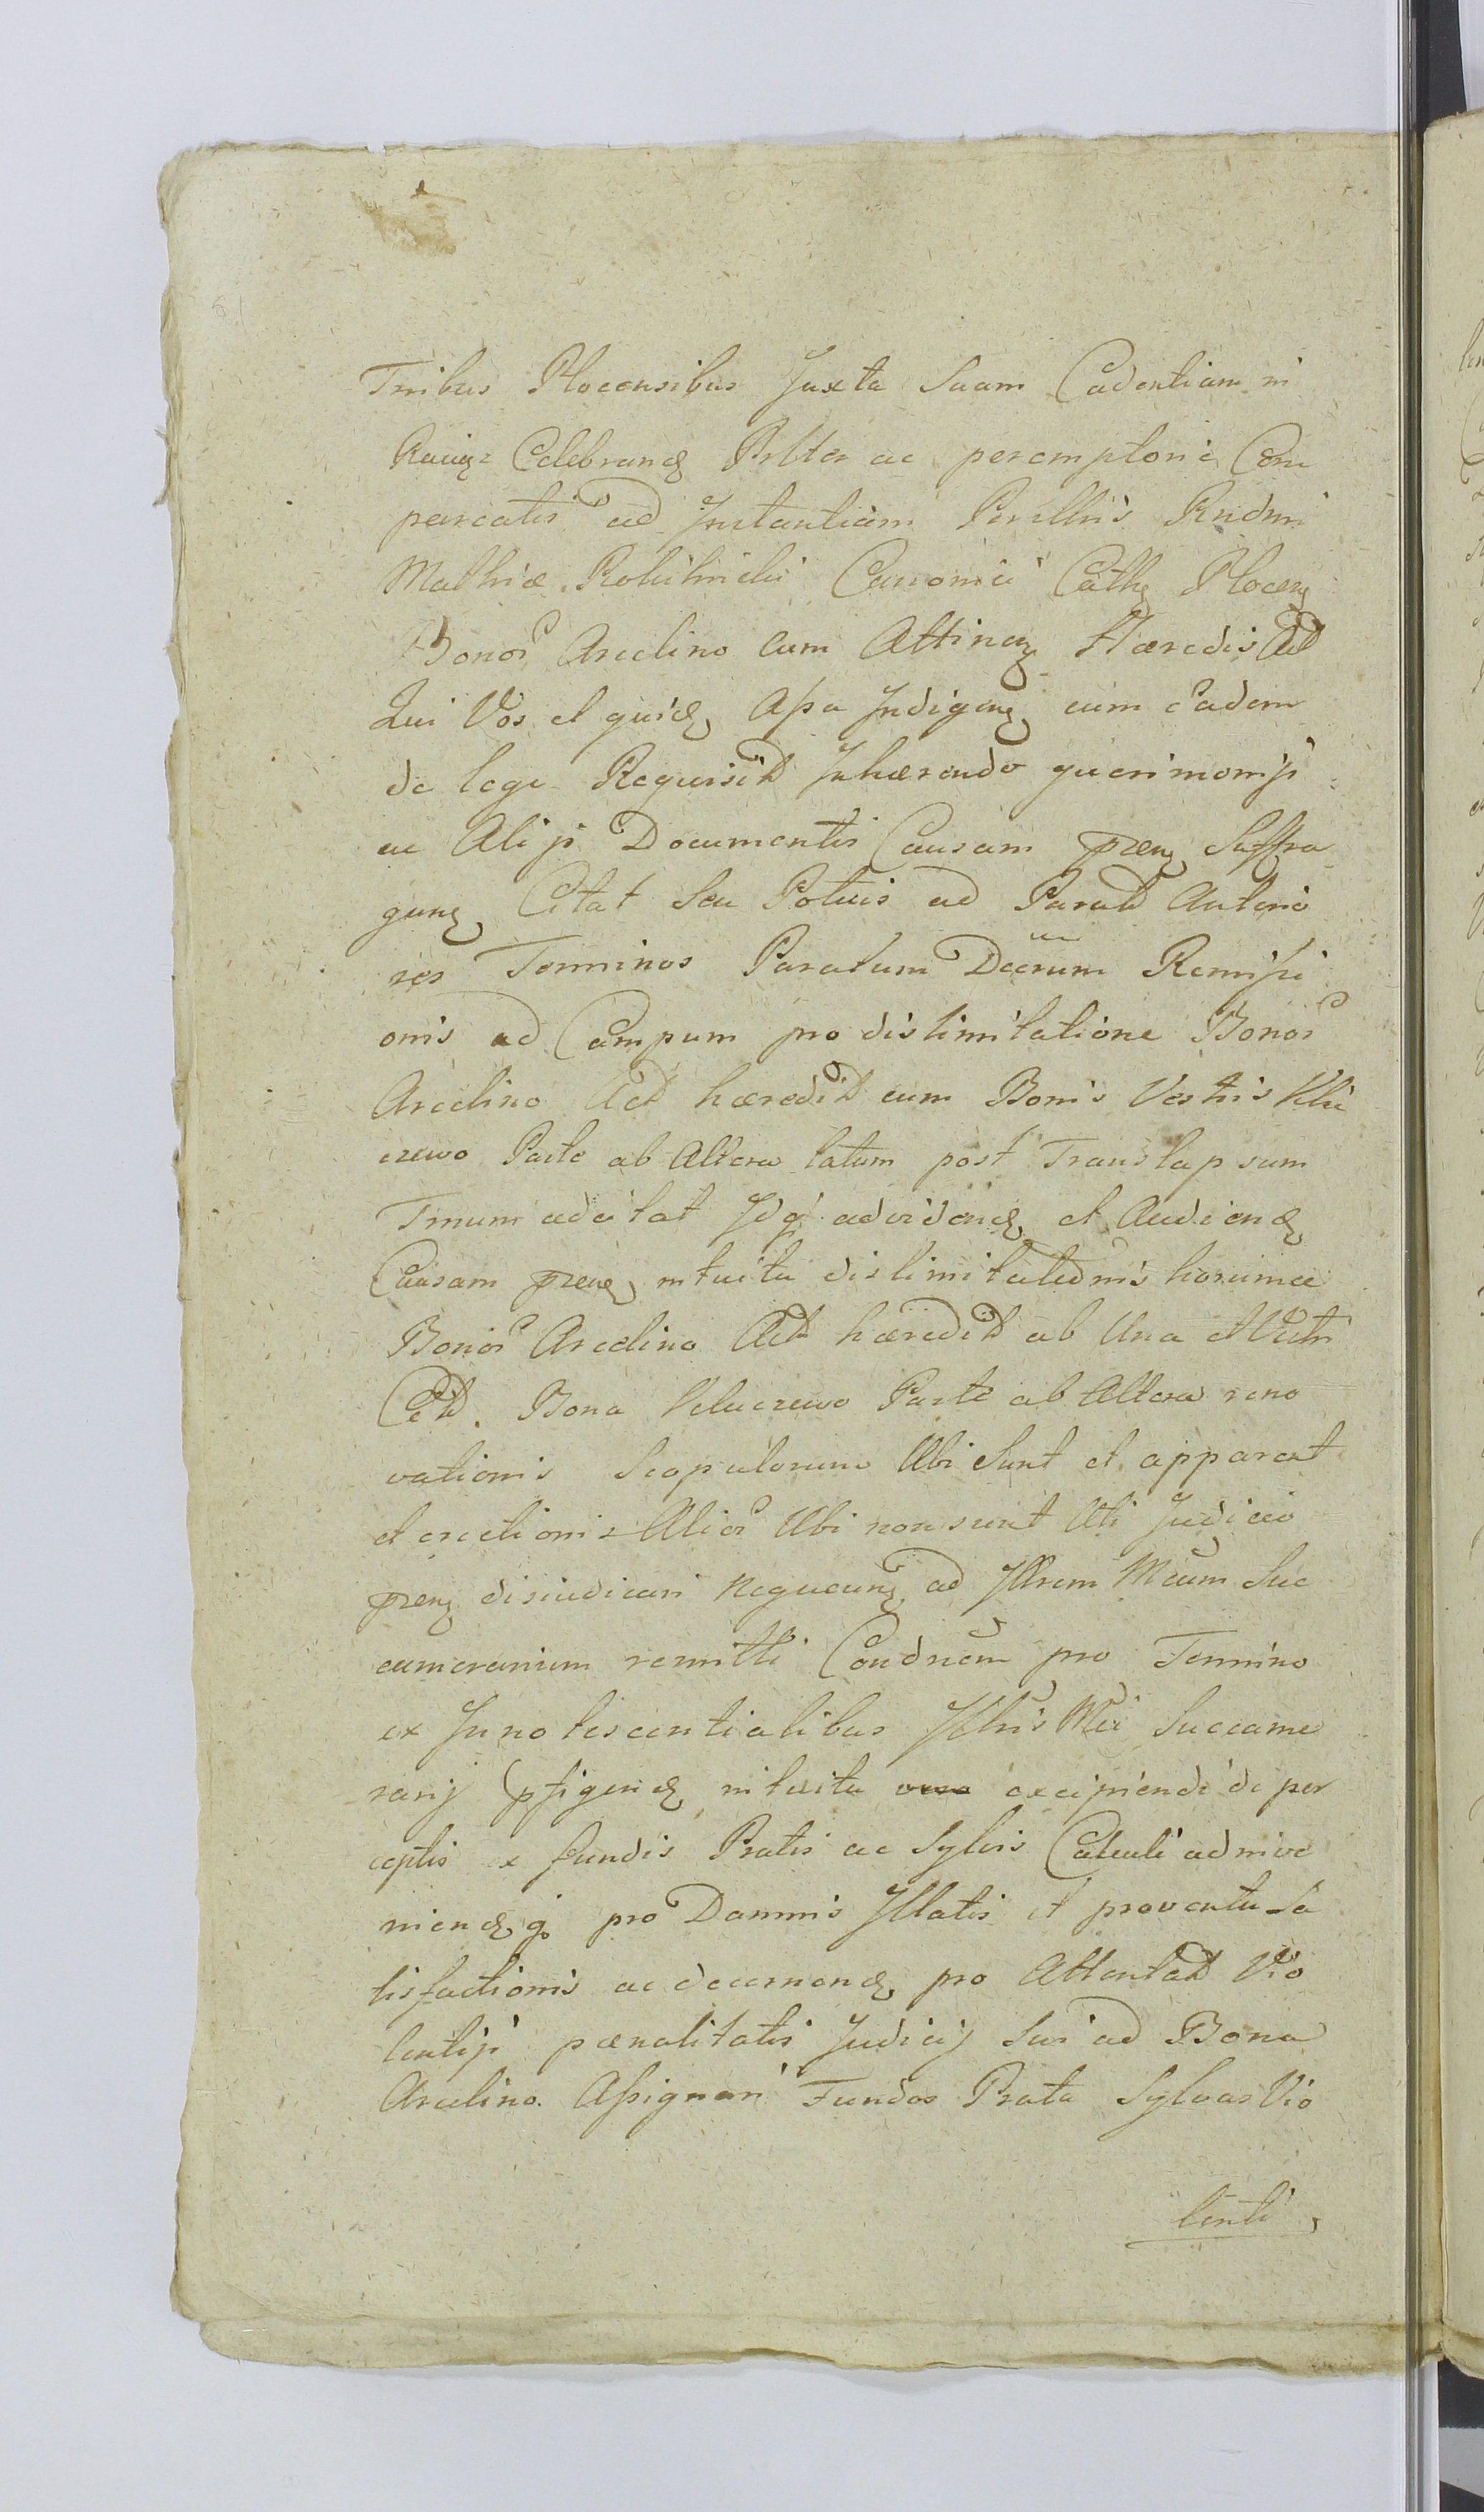 Tnibus Plocensibus Juxta Suam Cadentiam in
Raciąz Celebrand Pnltēr ac peremptorie Com
pareatis ad Instantiam Perillris Rndmi
Mathiæ Canonici Cath Plocen
Bonor Arcelino Cum Attinen Hæredis Act
Qui Vos et quid Apa Indigen cum eadem
de lege Requisit Inhærendo querimonijs
ac Alijs Documentis Causam præn Suffra
gan Citat Seu Potius ad Parat Anterio
res Terminos Paratum Decrum Remissi
onis ad Campum pro dislimitatione Bonor
Arcelino Act hæredit cum Bonis Vestris Klu
czewo Parte ab Altera latum post Translapsum
Tmum adcitat Idq advidend et Audiend
Causam præn intuitu dislimitationis horumce
Bonor Arcelino Act hæredit ab Una et Vestri
Citt. Bona Kluczewo Parte ab Altera reno
vationis Scopulorum Ubi Sunt et apparent
et erectionis Alior Ubi non sunt Uti Judicio
præn disiudicari nequeun ad Illrem Mcum Suc
camerarium remitti Condnem pro Termino
ex Innotescentialibus Illris Mci Succame
rarij pfigend intuitu excipiendi de per
ceptis ex fundis Pratis ac Sylvis Calculi adinve
niend q pro Damnis Illatis et proventu Sa
tisfactionis ac decernend pro Attentat Vio
lentijs pænalitatis Judicij Sui ad Bona
Arcelino Assignari Fundos Prata Sylvas Vio
lenti